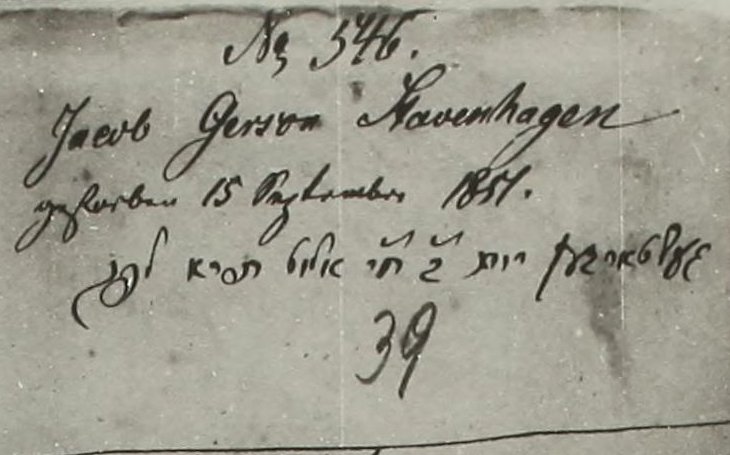 No 546.
Jacob Gerson Stavenhagen
gestorben 15 September 1851.
געשטארבען יום ב׳ ח״י אלול תריא לפק
39